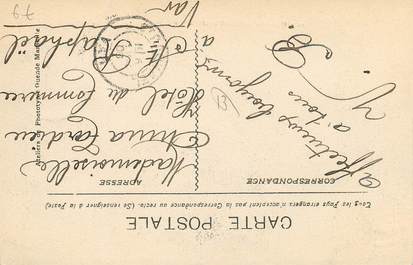 CARTE POSTALE
Tous les Pays étrangers n'acceptent pas la Correspondance au recto. (Se renseigner à la Poste)
CORRESPONDANCE
ADRESSE
Affectueux
à tous
Mademoiselle
Anna Tardieu
Hôtel du Commerce
à St Raphaël
Var
Ateliers de Phototypie Guende Marseille
B
79